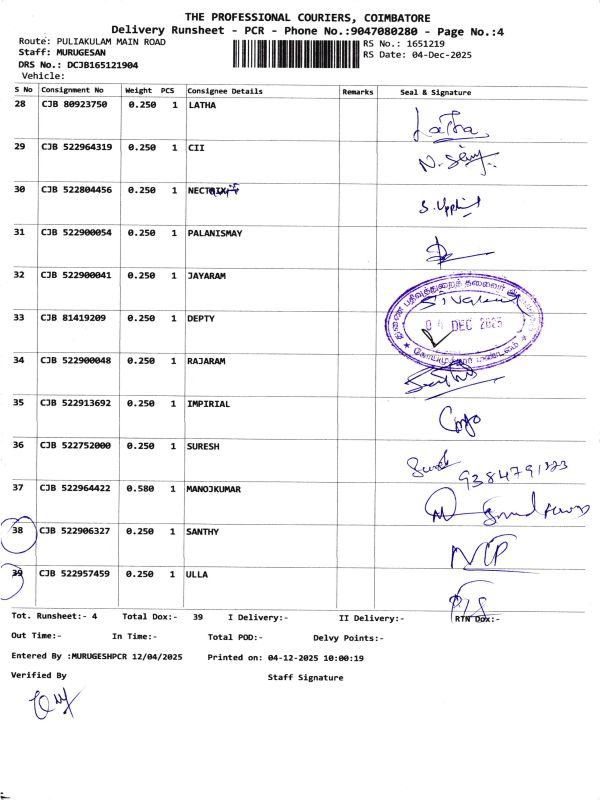 THE PROFESSIONAL COURIERS, COIMBATORE
Delivery Runsheet - PCR - Phone No.:9047080280 - Page No.:4
Route: PULIAKULAM MAIN ROAD
RS No.: 1651219
Staff: MURUGESAN
RS Date: 04-Dec-2025
DRS No.: DCJB165121904
Vehicle:
S No Consignment No Weight PCS Consignee Details Remarks Seal & Signature
28 CJB 80923750 0.250 1 LATHA Latha
29 CJB 522964319 0.250 1 CII
30 CJB 522804456 0.250 1
31 CJB 522900054 0.250 1 PALANISMAY
32 CJB 522900041 0.250 1 JAYARAM
33 CJB 81419209 0.250 1 DEPTY
04 DEC 2025
34 CJB 522900048 0.250 1 RAJARAM
35 CJB 522913692 0.250 1 IMPIRIAL
36 CJB 522752000 0.250 1 SURESH
37 CJB 522964422 0.580 1 MANOJKUMAR
38 CJB 522906327 0.250 1 SANTHY
39 CJB 522957459 0.250 1 ULLA
Tot. Runsheet:- 4 Total Dox:- 39 I Delivery:- II Delivery:- RTN Dox:-
Out Time:- In Time:- Total POD:- Delvy Points:-
Entered By :MURUGESHPCR 12/04/2025 Printed on: 04-12-2025 10:00:19
Verified By Staff Signature